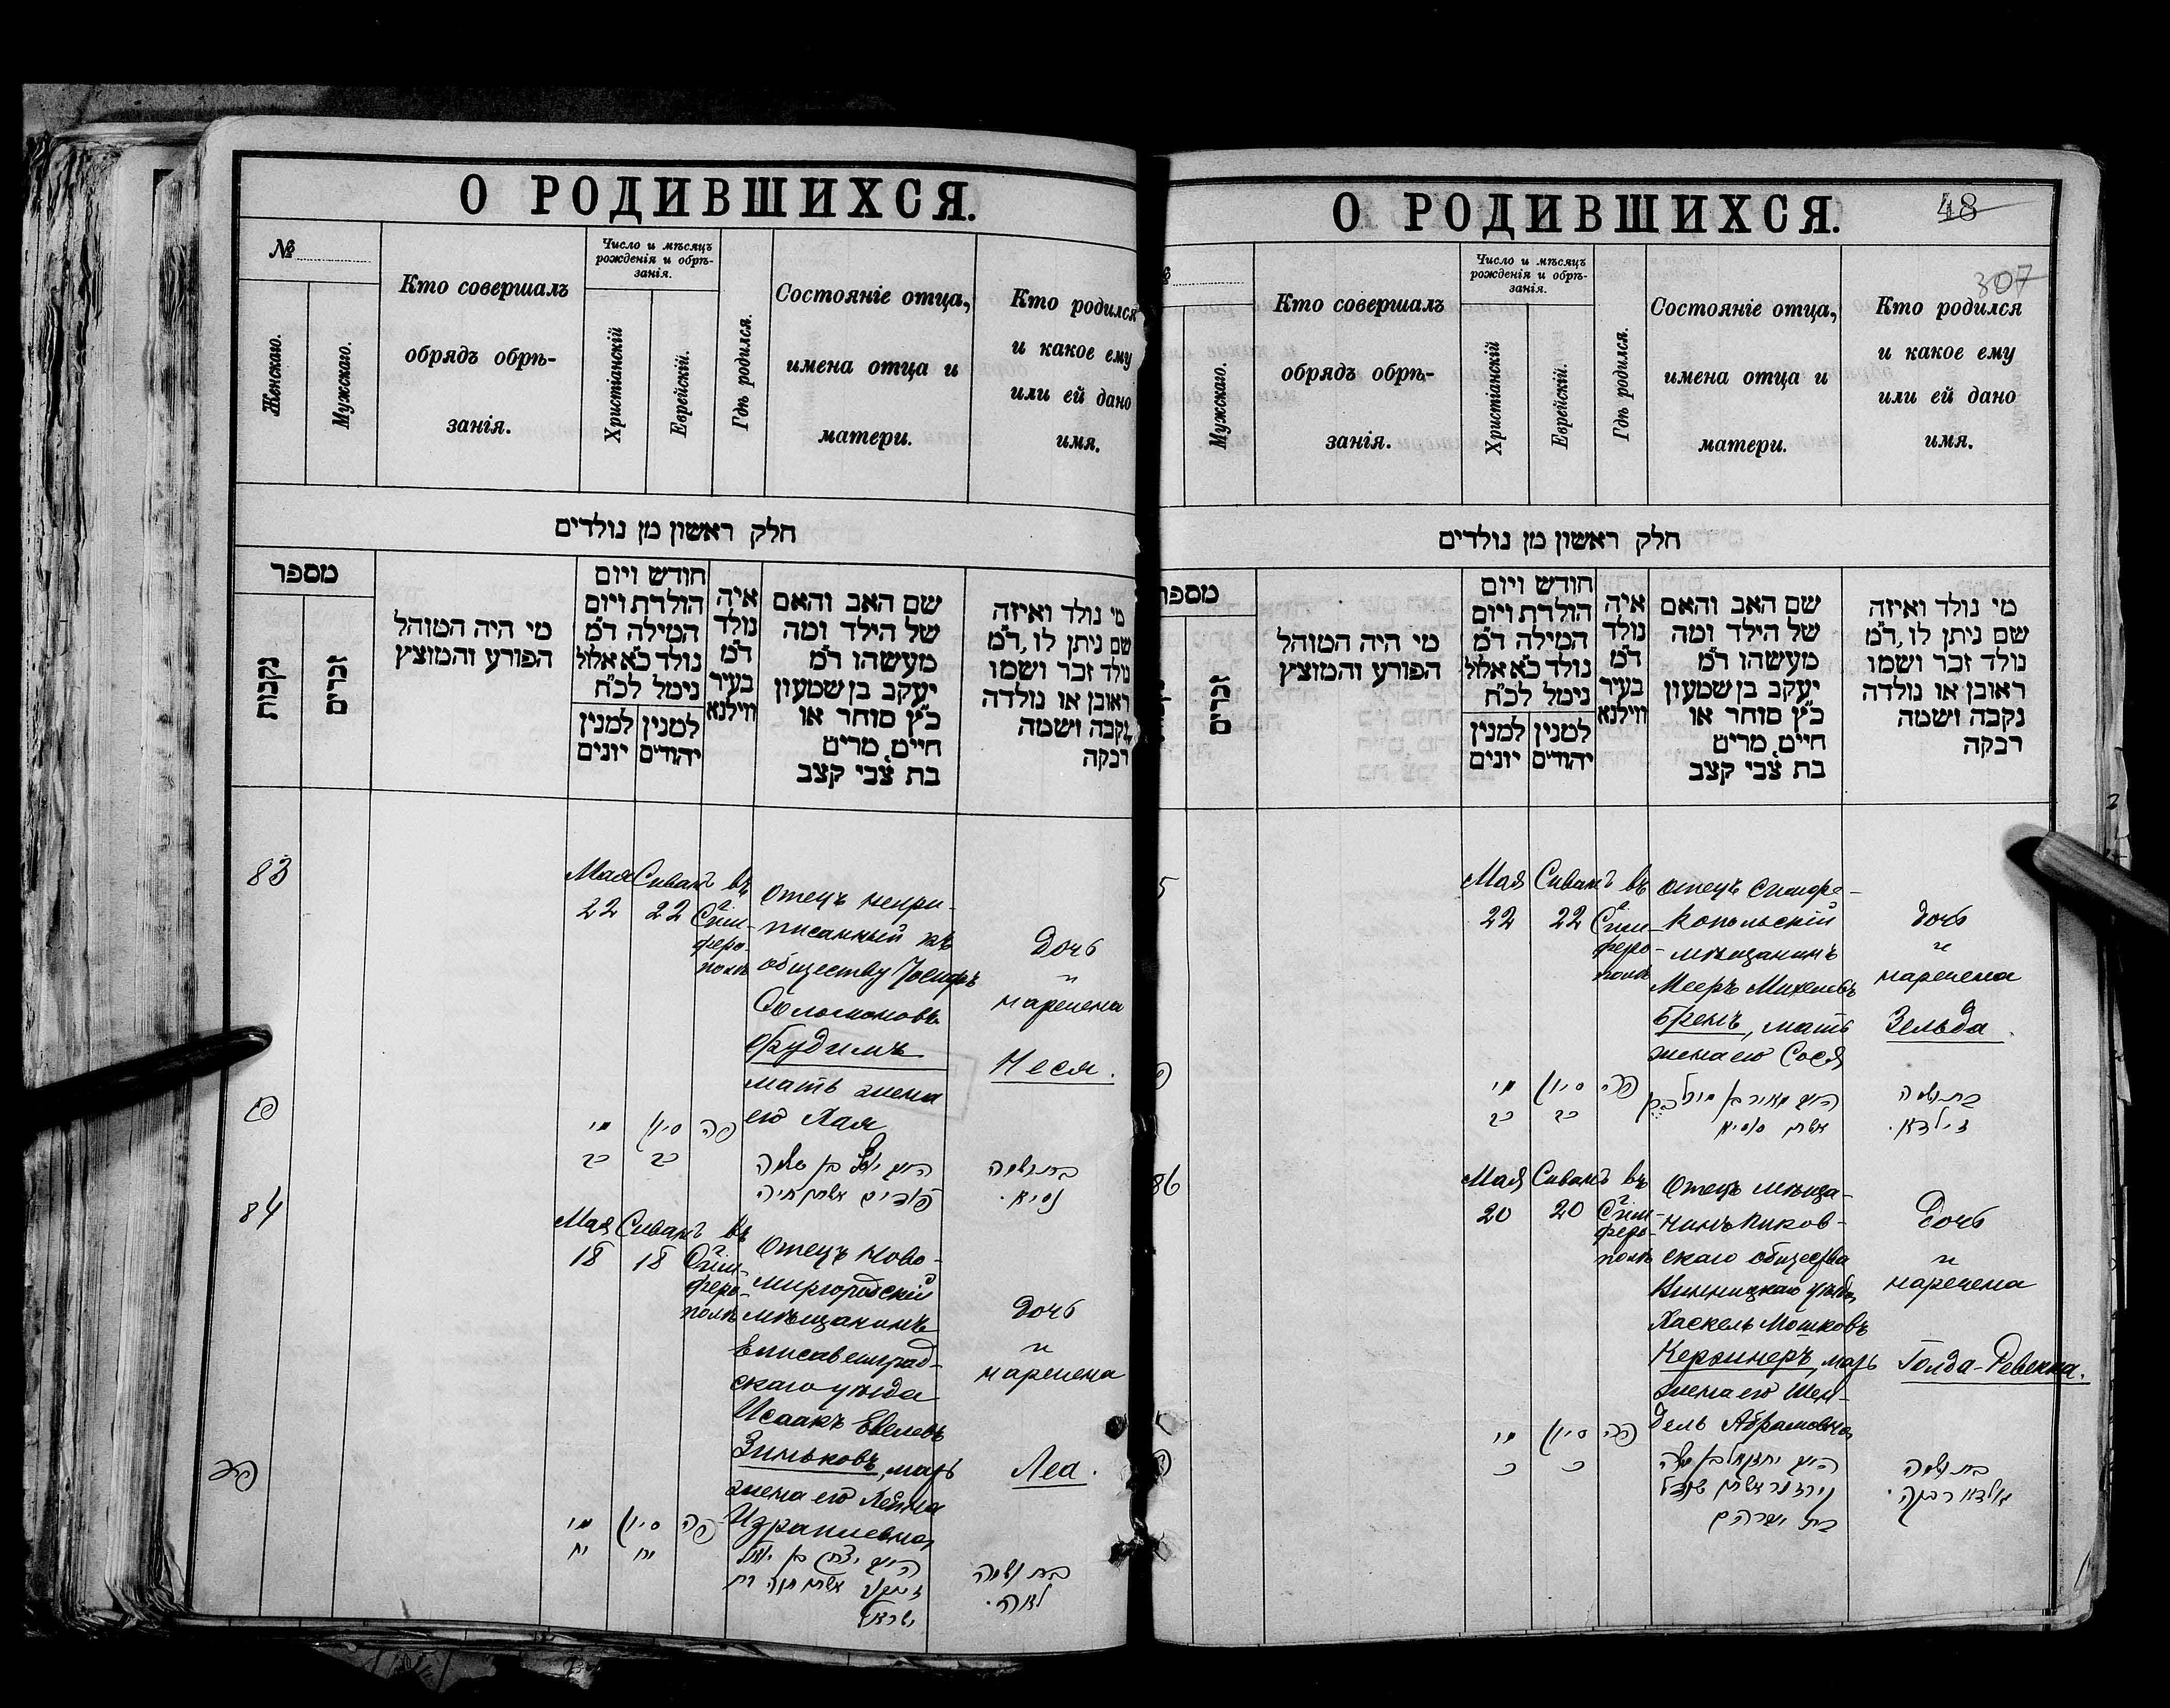 О РОДИВШИХСЯ.
№
Женскаго.
Мужскаго.
Кто совершалъ
обрядъ обрѣ-
занія.
Число и мѣсяцъ
рожденія и обрѣ-
занія.
Христіанскій
Еврейскій.
Гдѣ родился.
Состояніе отца,
имена отца и
матери.
Кто родился
и какое ему
или ей дано
имя.
חלק ראשון מן נולדים
מספר
נקבות
זכרים
מי היה המוהל
הפורע והמוצץ
חודש ויום
הולדת ויום
המילה ד״מ
נולד כ״א אלול
נימל לכ״ח
למנין יהודים
למנין יונים
איה
נולד
ד״מ
בעיר
ווילנא
שם האב והאם
של הילד ומה
מעשהו ד״מ
יעקב בן שמעון
כ״ץ סוחר או
חיים, מרים
בת צבי קצב
מי נולד ואיזה
שם ניתן לו, ד״מ
נולד זכר ושמו
ראובן או נולדה
נקבה ושמה
רבקה
83
Мая
22
Сиванъ
22
въ г.
Сим-
феро-
полѣ
Отецъ непри-
писанный къ
обществу Іосифъ
Соломоновъ
Фудимъ
мать жена
его Хая
Дочь
и
наречена
Неся.
מיי
כב
סיון
כב
פה
בת ושמה
נסיא.
84
Мая
18
Сиванъ
18
въ г.
Сим-
феро-
полѣ
Отецъ Ново-
миргородскій
мѣщанинъ
Елисаветград-
скаго уѣзда
Исаакъ Евелевъ
Зиньковъ, мать
жена его Хейна
Израилевна
Дочь
и
наречена
Леа.
פד
מיי
יח
סיון
יח
פה
ישראל
בת ושמה
לאה.
О РОДИВШИХСЯ.
48
307
Мужскаго.
Кто совершалъ
обрядъ обрѣ-
занія.
Число и мѣсяцъ
рожденія и обрѣ-
занія.
Христіанскій
Еврейскій.
Гдѣ родился.
Состояніе отца,
имена отца и
матери.
Кто родился
и какое ему
или ей дано
имя.
חלק ראשון מן נולדים
מספר
זכרים
מי היה המוהל
הפורע והמוצץ
חודש ויום
הולדת ויום
המילה ד״מ
נולד כ״א אלול
נימל לכ״ח
למנין יהודים
למנין יונים
איה
נולד
ד״מ
בעיר
ווילנא
שם האב והאם
של הילד ומה
מעשהו ד״מ
יעקב בן שמעון
כ״ץ סוחר או
חיים, מרים
בת צבי קצב
מי נולד ואיזה
שם ניתן לו, ד״מ
נולד זכר ושמו
ראובן או נולדה
נקבה ושמה
רבקה
5
Мая
22
Сиванъ
22
въ г.
Сим-
феро-
полѣ
Отецъ Симфе-
ропольскій
мѣщанинъ
Мееръ Михелевъ
Бренъ, мать
жена его Сося
Дочь
и
наречена
Зельда.
מיי
כב
סיון
כב
פה
בת ושמה
זילדא.
86
Мая
20
Сиванъ
20
въ г.
Сим-
феро-
полѣ
Отецъ мѣща-
нинъ Пиков-
скаго общества
Винницкаго уѣзда
Хаскель Мошковъ
Керзнеръ, мать
жена его Шен-
дель Абрамовна
Дочь
и
наречена
Голда-Ревекка.
מיי
כ
סיון
כ
פה
בת אברהם
בת ושמה
גאלדא רבקה.